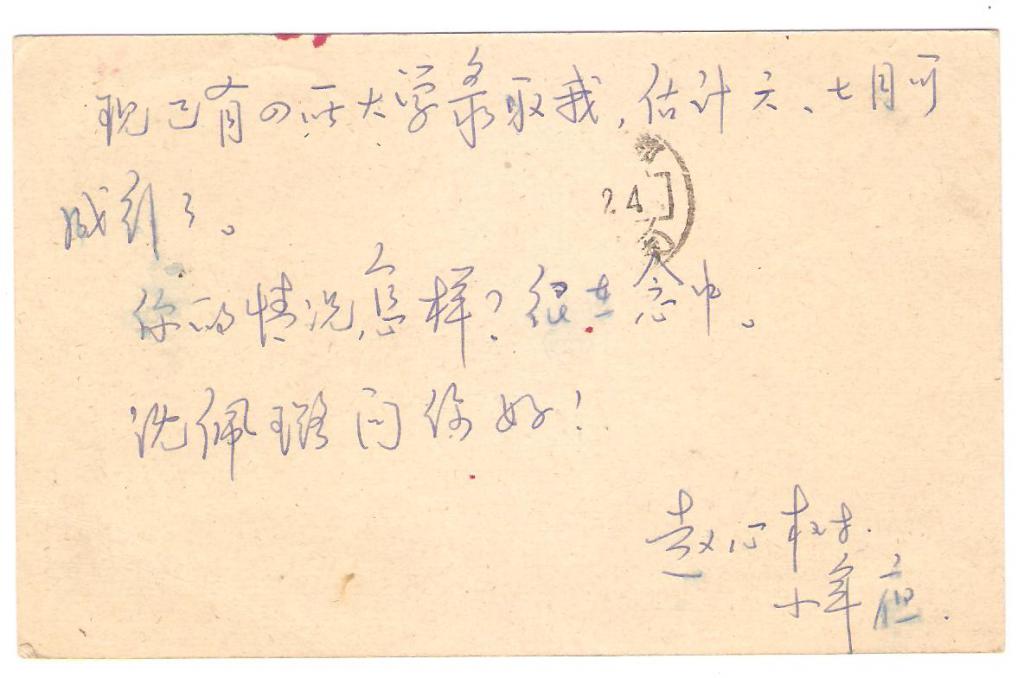 现已有四所大学录取我,估计六、七月可
成行了。
你的情况怎样?很在念中。
沈佩璐问你好!
赵心树.
24